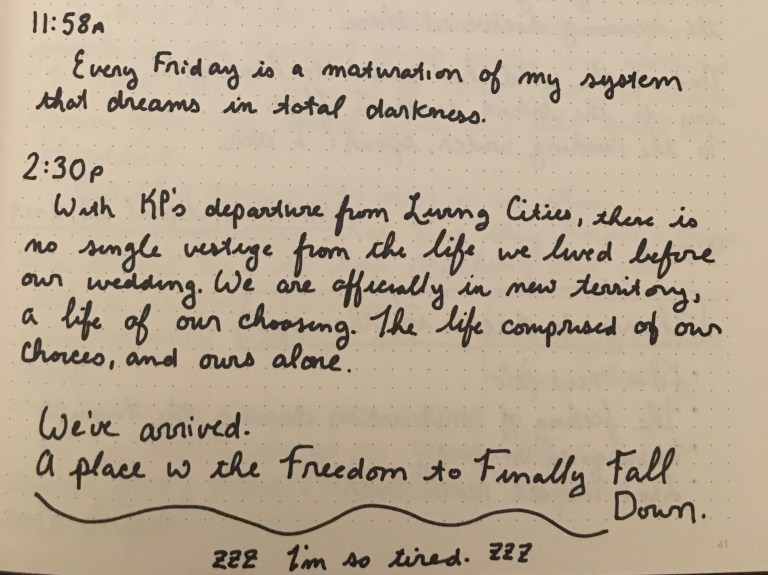 11:58A
Every Friday is a maturation of my system
that dreams in total darkness.
2:30P
With KP's departure from Living Cities, there is
no single vestige from the life we lived before
our wedding. We are officially in new territory,
a life of our choosing. The life comprised of our
choices, and ours alone.
We've arrived.
A place w the Freedom to Finally Fall
Down.
zzz I'm so tired. zzz